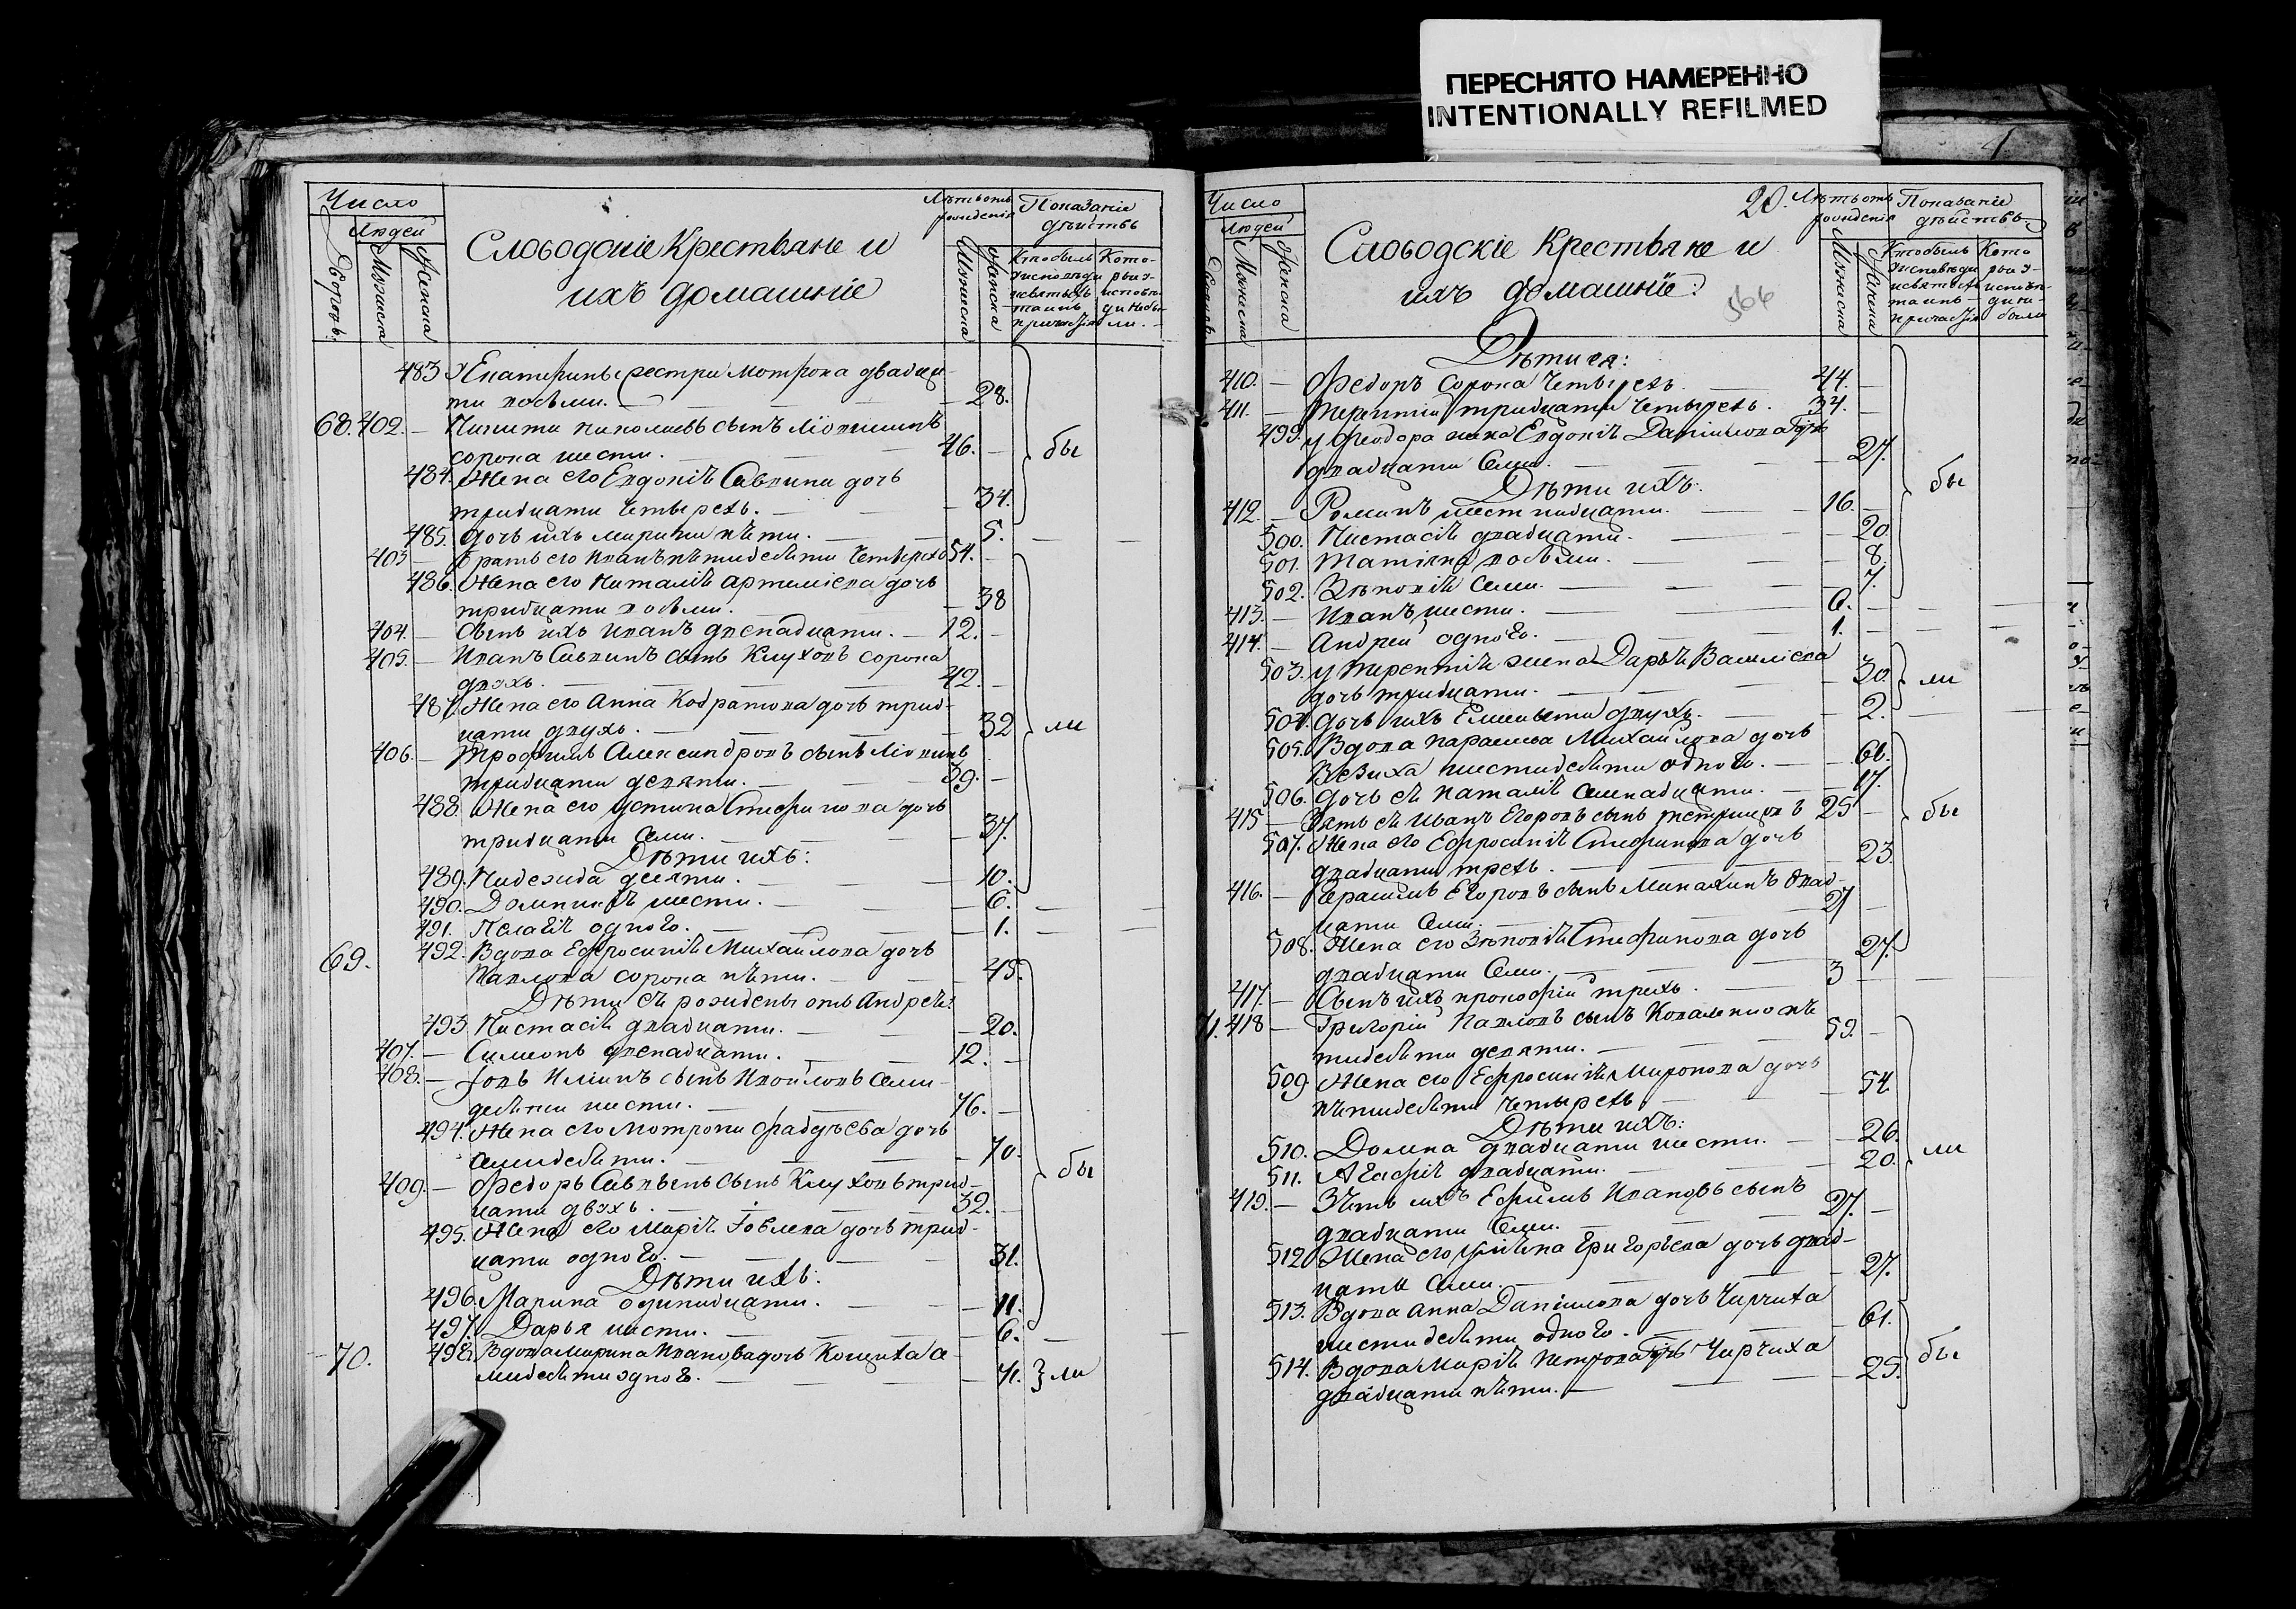 ПЕРЕСНЯТО НАМЕРЕННО
INTENTIONALLY REFILMED
Число
Людей
Дворовъ.
Мужиска
Женска
Слободскіе Крестьяне и
ихъ домашніе
Лѣтъ отъ рожденія
Мужиска
Женска
Показаніе дѣйствъ
483. У Екатерины сестра Мотрона двадца-
ти восьми. 28.
68. 402. Никита Николаевъ сынъ
сорока шести. 46.
484. Жена его Евдокія Саввина дочь
тридцати четырехъ. 34.
485. Дочь ихъ Марина пяти. 5.
403. Братъ его Иванъ пятидесяти четырехъ 54.
486. Жена его Наталія Артемieва дочь
тридцати восьми. 38
404. Сынъ ихъ Иванъ двенадцати. 12.
405. Иванъ Саввинъ сынъ Клуховъ сорока
двухъ. 42.
487. Жена его Анна Кодратова дочь трид-
цати двухъ. 32
406. Трофимъ Александровъ сынъ
тридцати девяти. 39.
488. Жена его Устина Стефанова дочь
тридцати семи. 37.
Дѣти ихъ:
489. Надежда десяти. 10.
490. Домникія шести. 6.
491. Пелагія одного. 1.
69. 492. Вдова Ефросинія Михайлова дочь
Павлова сорока пяти. 45.
Дѣти ея рождены отъ Андрея:
493. Настасія двадцати. 20.
407. Симеонъ двенадцати. 12.
408. Іовъ Иліинъ сынъ семи-
десяти шести. 76.
494. Жена его Мотрона Фадѣева дочь
семидесяти. 70.
409. Федоръ Саввинъ сынъ Клуховъ трид-
цати двухъ. 32.
495. Жена его Марія Іовлева дочь трид-
цати одного. 31.
Дѣти ихъ:
496. Марина одинадцати. 11.
497. Дарья шести. 6.
70. 498. Вдова Марина Иванова дочь се-
мидесяти одного. 71.
бы
ли
бы
ли
Число
Людей
Мужиска
Женска
Слободскіе Крестьяне и
ихъ домашніе:
20.
566
Лѣтъ отъ рожденія
Мужиска
Женска
Показаніе дѣйствъ
Дѣти ея:
410. Федоръ сорока четырехъ. 44.
411. Терентій тридцати четырехъ. 34.
499. у Феодора жена Евдокія Даніилова дочь
двадцати семи. 27.
Дѣти ихъ:
412. Романъ шестнадцати. 16.
500. Настасія двадцати. 20.
501. Татіяна восьми. 8.
502. Зѣновія семи. 7.
413. Иванъ шести. 6.
414. Андрей одного. 1.
503. у Терентія жена Дарья Василіева
дочь тридцати. 30.
504. Дочь ихъ Елисавета двухъ. 2.
505. Вдова Параскева Михайлова дочь
шестидесяти одного. 61.
506. Дочь ея Наталія семнадцати. 17.
415. Зять ея Иванъ Егоровъ сынъ 25
507. Жена его Ефросинія Стефанова дочь
двадцати трехъ. 23.
416. Герасимъ Егоровъ сынъ двад-
цати семи. 27
508. Жена его Зѣновія Стефанова дочь
двадцати семи. 27.
417. Сынъ ихъ Прокофій трехъ. 3
71. 418 Григорій Павловъ сынъ пя-
тидесяти девяти. 59.
509. Жена его Ефросинія Миронова дочь
пятидесяти четырехъ. 54.
Дѣти ихъ:
510. Домна двадцати шести. 26.
511. Агафія двадцати. 20.
419. Зять ихъ Ефимъ Ивановъ сынъ
двадцати семи. 27.
512. Жена его Григорьева дочь двад-
цати семи. 27.
513. Вдова Анна Даніилова дочь
шестидесяти одного. 61.
514. Вдова Марія Петрова дочь
двадцати пяти. 25.
бы
ли
бы
ли
бы